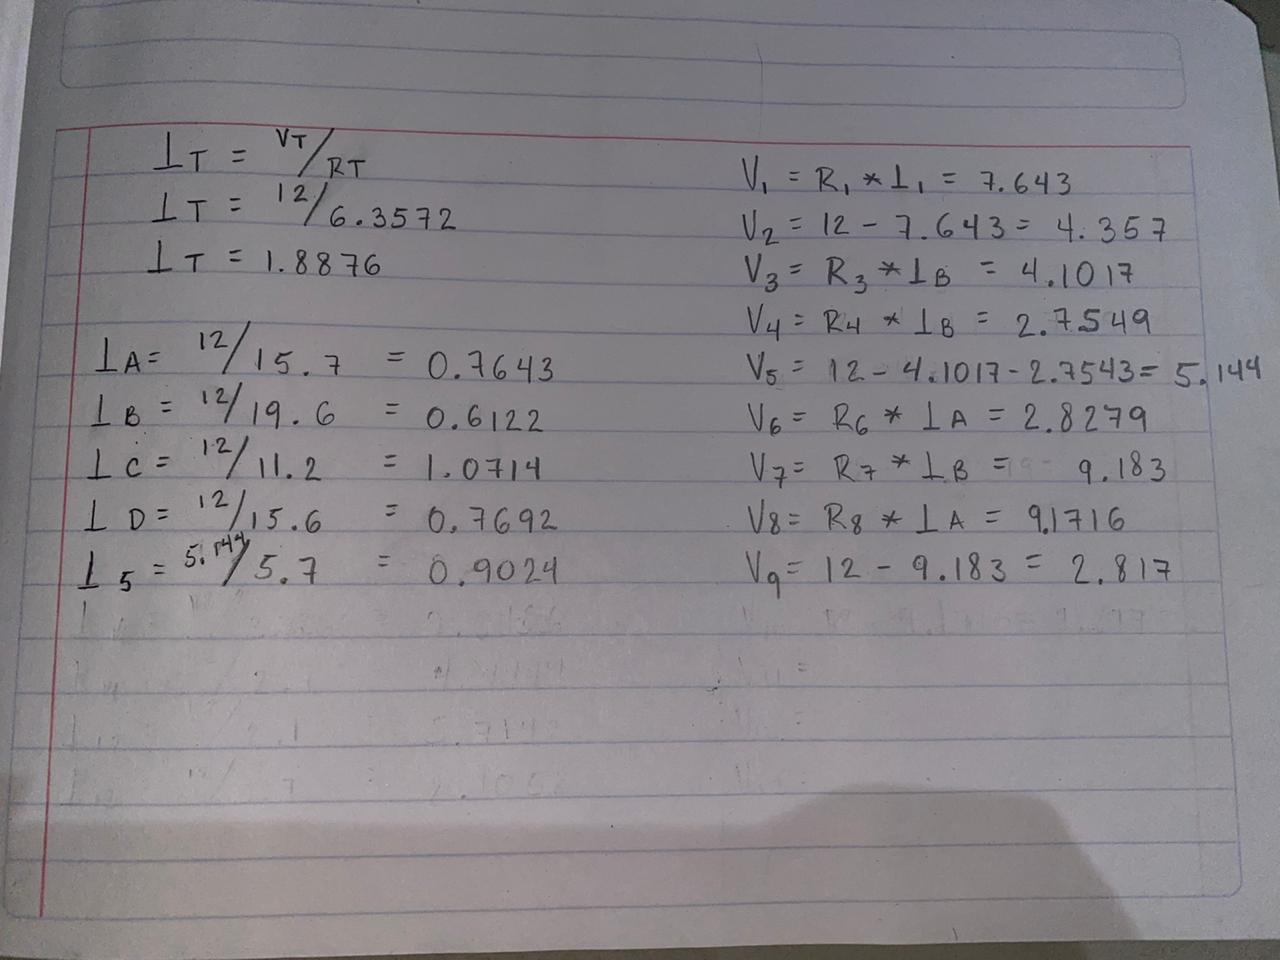 IT = VT/RT
IT = 12/6.3572
IT = 1.8876
IA = 12/15.7 = 0.7643
IB = 12/19.6 = 0.6122
IC = 12/11.2 = 1.0714
ID = 12/15.6 = 0.7692
I5 = 5.144/5.7 = 0.9024
V1 = R1 * I1 = 7.643
V2 = 12 - 7.643 = 4.357
V3 = R3 * IB = 4.1017
V4 = R4 * IB = 2.7549
V5 = 12 - 4.1017 - 2.7543 = 5.144
V6 = R6 * IA = 2.8279
V7 = R7 * IB = 9.183
V8 = R8 * IA = 9.1716
V9 = 12 - 9.183 = 2.817